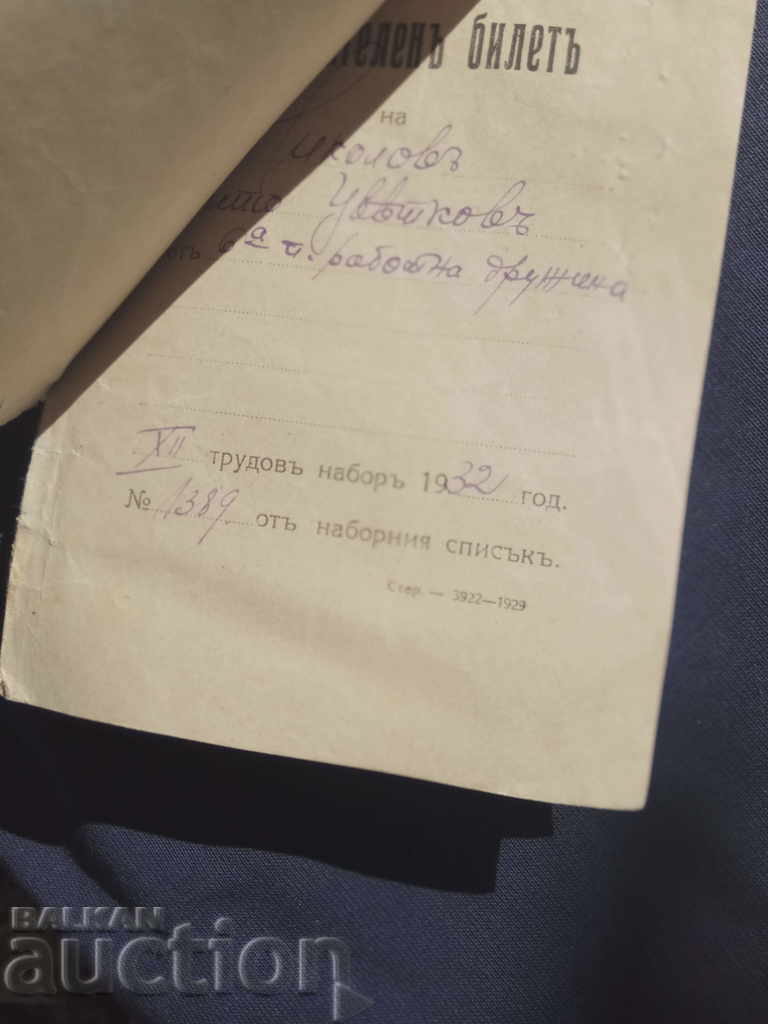 теленъ билетъ
на
иколовъ
Цвѣтковъ
отъ 6а ч. работна дружина
XII трудовъ наборъ 1932 год.
№ 1389 отъ наборния списъкъ.
Стер. — 3922—1929
BALKAN
auction